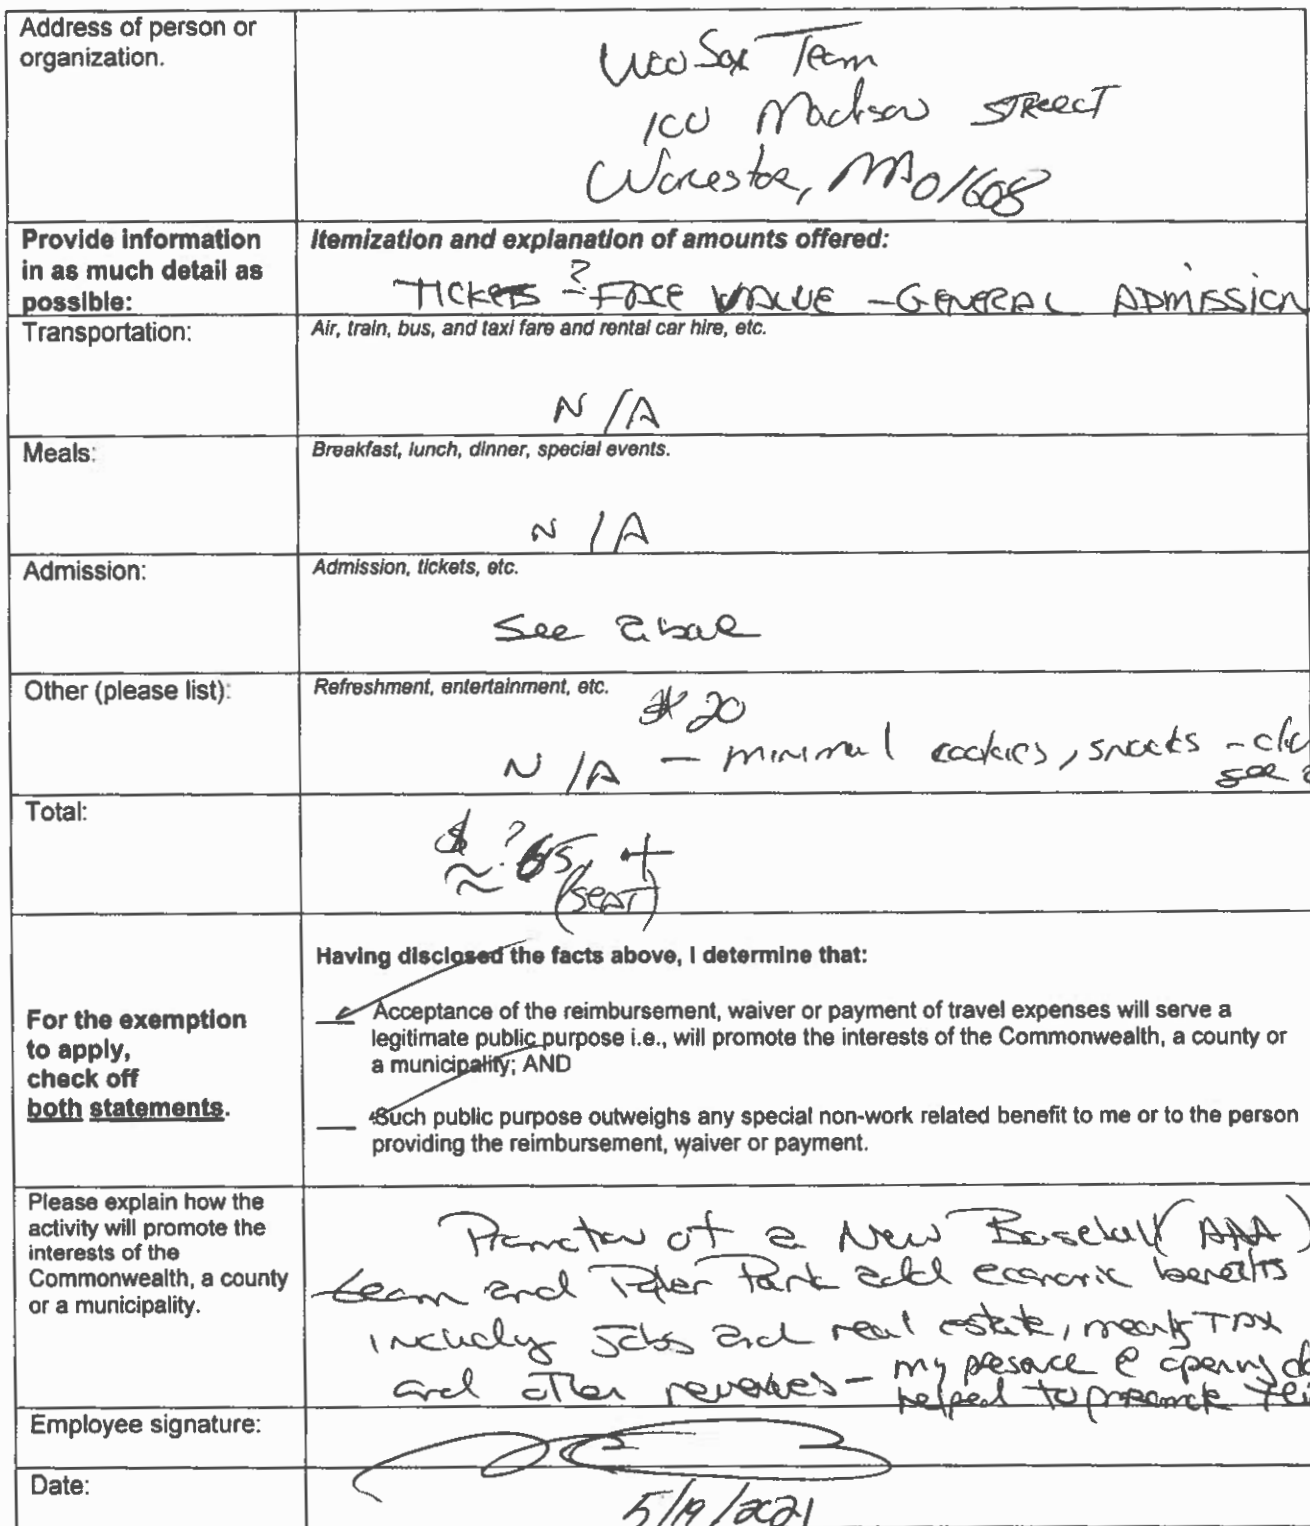 Address of person or
organization.
WooSox Team
100 Madison STREET
Worcester, MA 01608
Provide information
in as much detail as
possible:
Itemization and explanation of amounts offered:
TICKETS - ? FACE VALUE - GENERAL ADMISSION
Transportation:
Air, train, bus, and taxi fare and rental car hire, etc.
N/A
Meals:
Breakfast, lunch, dinner, special events.
N/A
Admission:
Admission, tickets, etc.
See above
Other (please list):
Refreshment, entertainment, etc.
$20
N/A - minimal cookies, snacks -
see
Total:
$ ≈ ? 65 +
(SEAT)
For the exemption
to apply,
check off
both statements.
Having disclosed the facts above, I determine that:
Acceptance of the reimbursement, waiver or payment of travel expenses will serve a
legitimate public purpose i.e., will promote the interests of the Commonwealth, a county or
a municipality; AND
Such public purpose outweighs any special non-work related benefit to me or to the person
providing the reimbursement, waiver or payment.
Please explain how the
activity will promote the
interests of the
Commonwealth, a county
or a municipality.
Promotion of a New Baseball (AAA)
team and Polar Park add economic benefits
including jobs and real estate, TAX
and other revenues - my presence @ opening
helped to promote
Employee signature:
Date:
5/19/2021